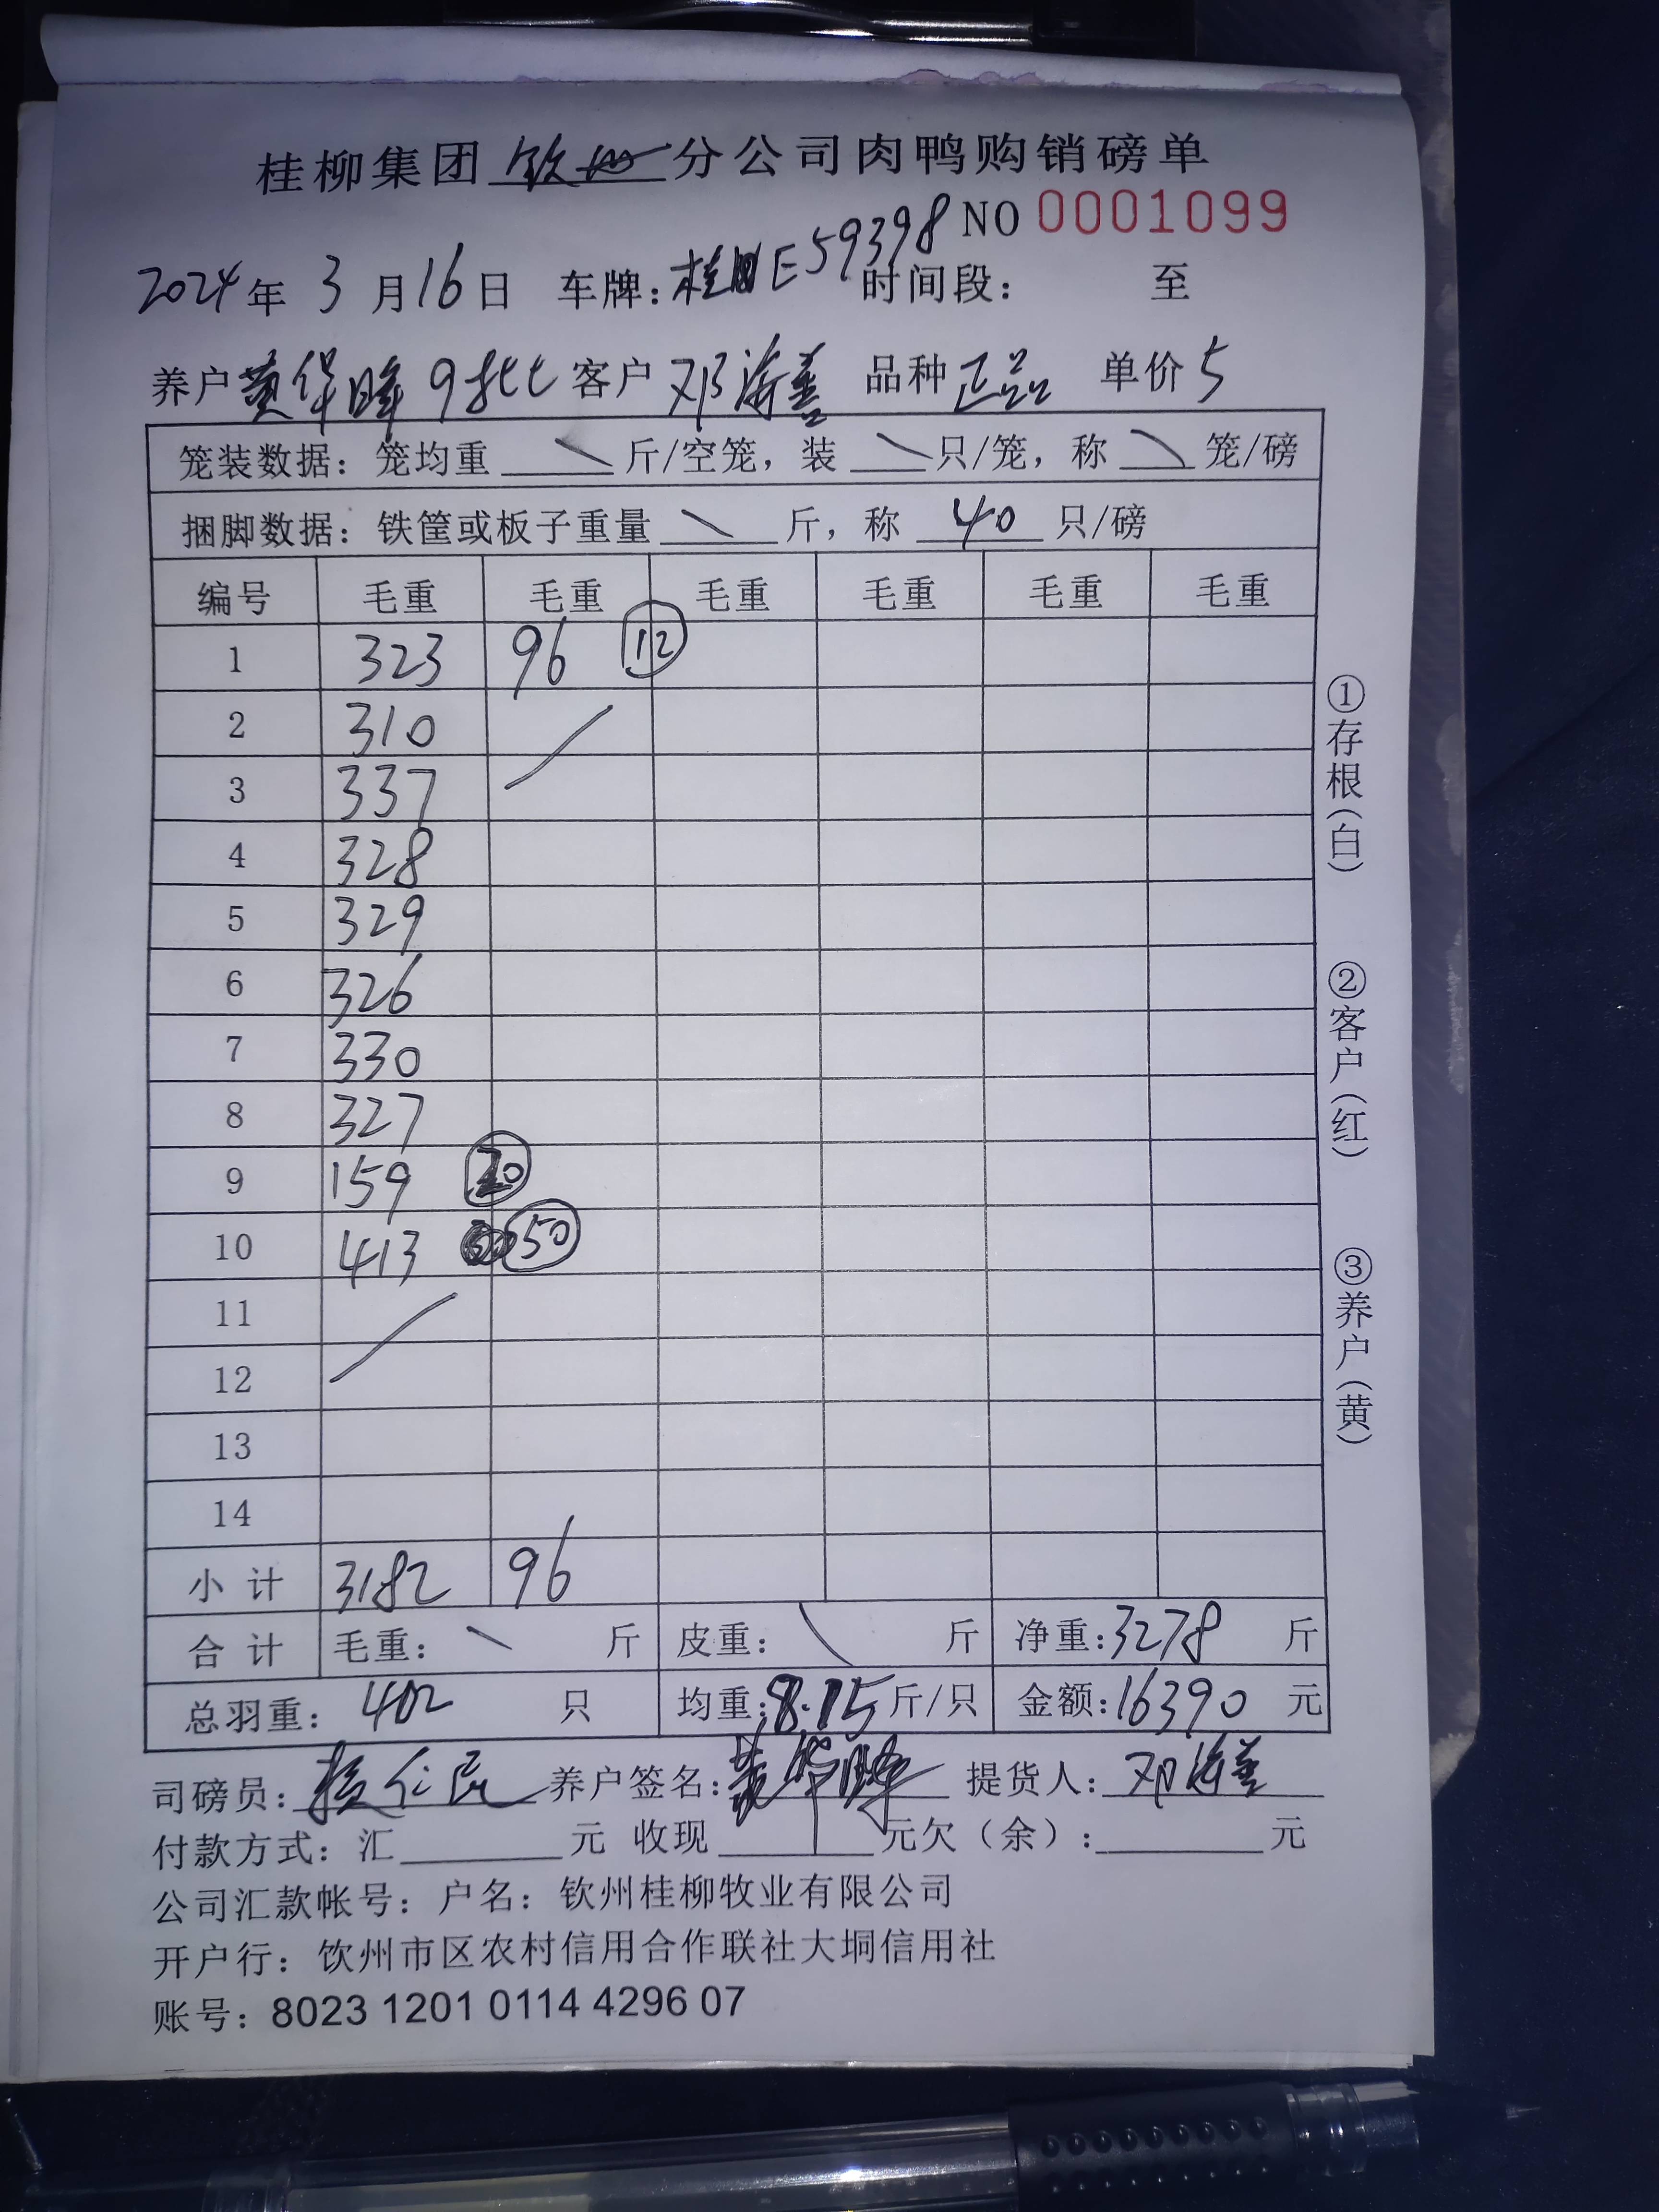 桂柳集团钦州分公司肉鸭购销磅单
NO 0001099
2024年 3 月16日 车牌:桂E59398 时间段: 至
养户黄华晖 9批 客户 邓海善 品种 正品 单价5
笼装数据: 笼均重 \ 斤/空笼, 装 \ 只/笼, 称 \ 笼/磅
捆脚数据: 铁筐或板子重量 \ 斤, 称 40 只/磅
编号 毛重 毛重 毛重 毛重 毛重 毛重
1 323 96 ⑫
2 310 /
3 337
4 328
5 329
6 326
7 330
8 327
9 159 ⑳
10 413 ㊿
11 /
12
13
14
小 计 3182 96
合 计 毛重: \ 斤 皮重: \ 斤 净重:3278 斤
总羽重: 402 只 均重:8.15斤/只 金额:16390 元
司磅员: 仁民 养户签名:黄华晖 提货人:邓海善
付款方式: 汇 元 收现 元欠(余): 元
公司汇款帐号: 户名: 钦州桂柳牧业有限公司
开户行: 钦州市区农村信用合作联社大垌信用社
账号: 8023 1201 0114 4296 07
①存根(白)
②客户(红)
③养户(黄)